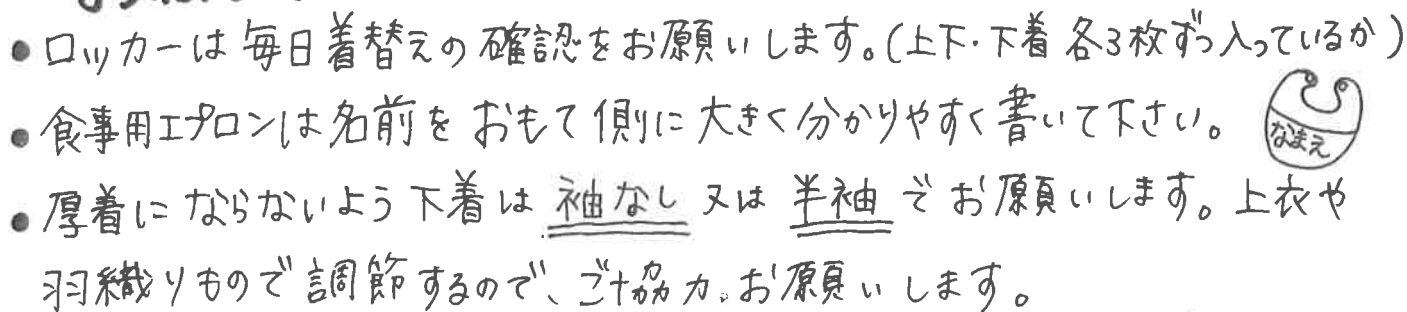 ● ロッカーは毎日着替えの確認をお願いします。(上下・下着各3枚ずつ入っているか)
● 食事用エプロンは名前をおもて側に大きく分かりやすく書いて下さい。
なまえ
● 厚着にならないよう下着は袖なし又は半袖でお願いします。上衣や
羽織りもので調節するので、ご協力お願いします。